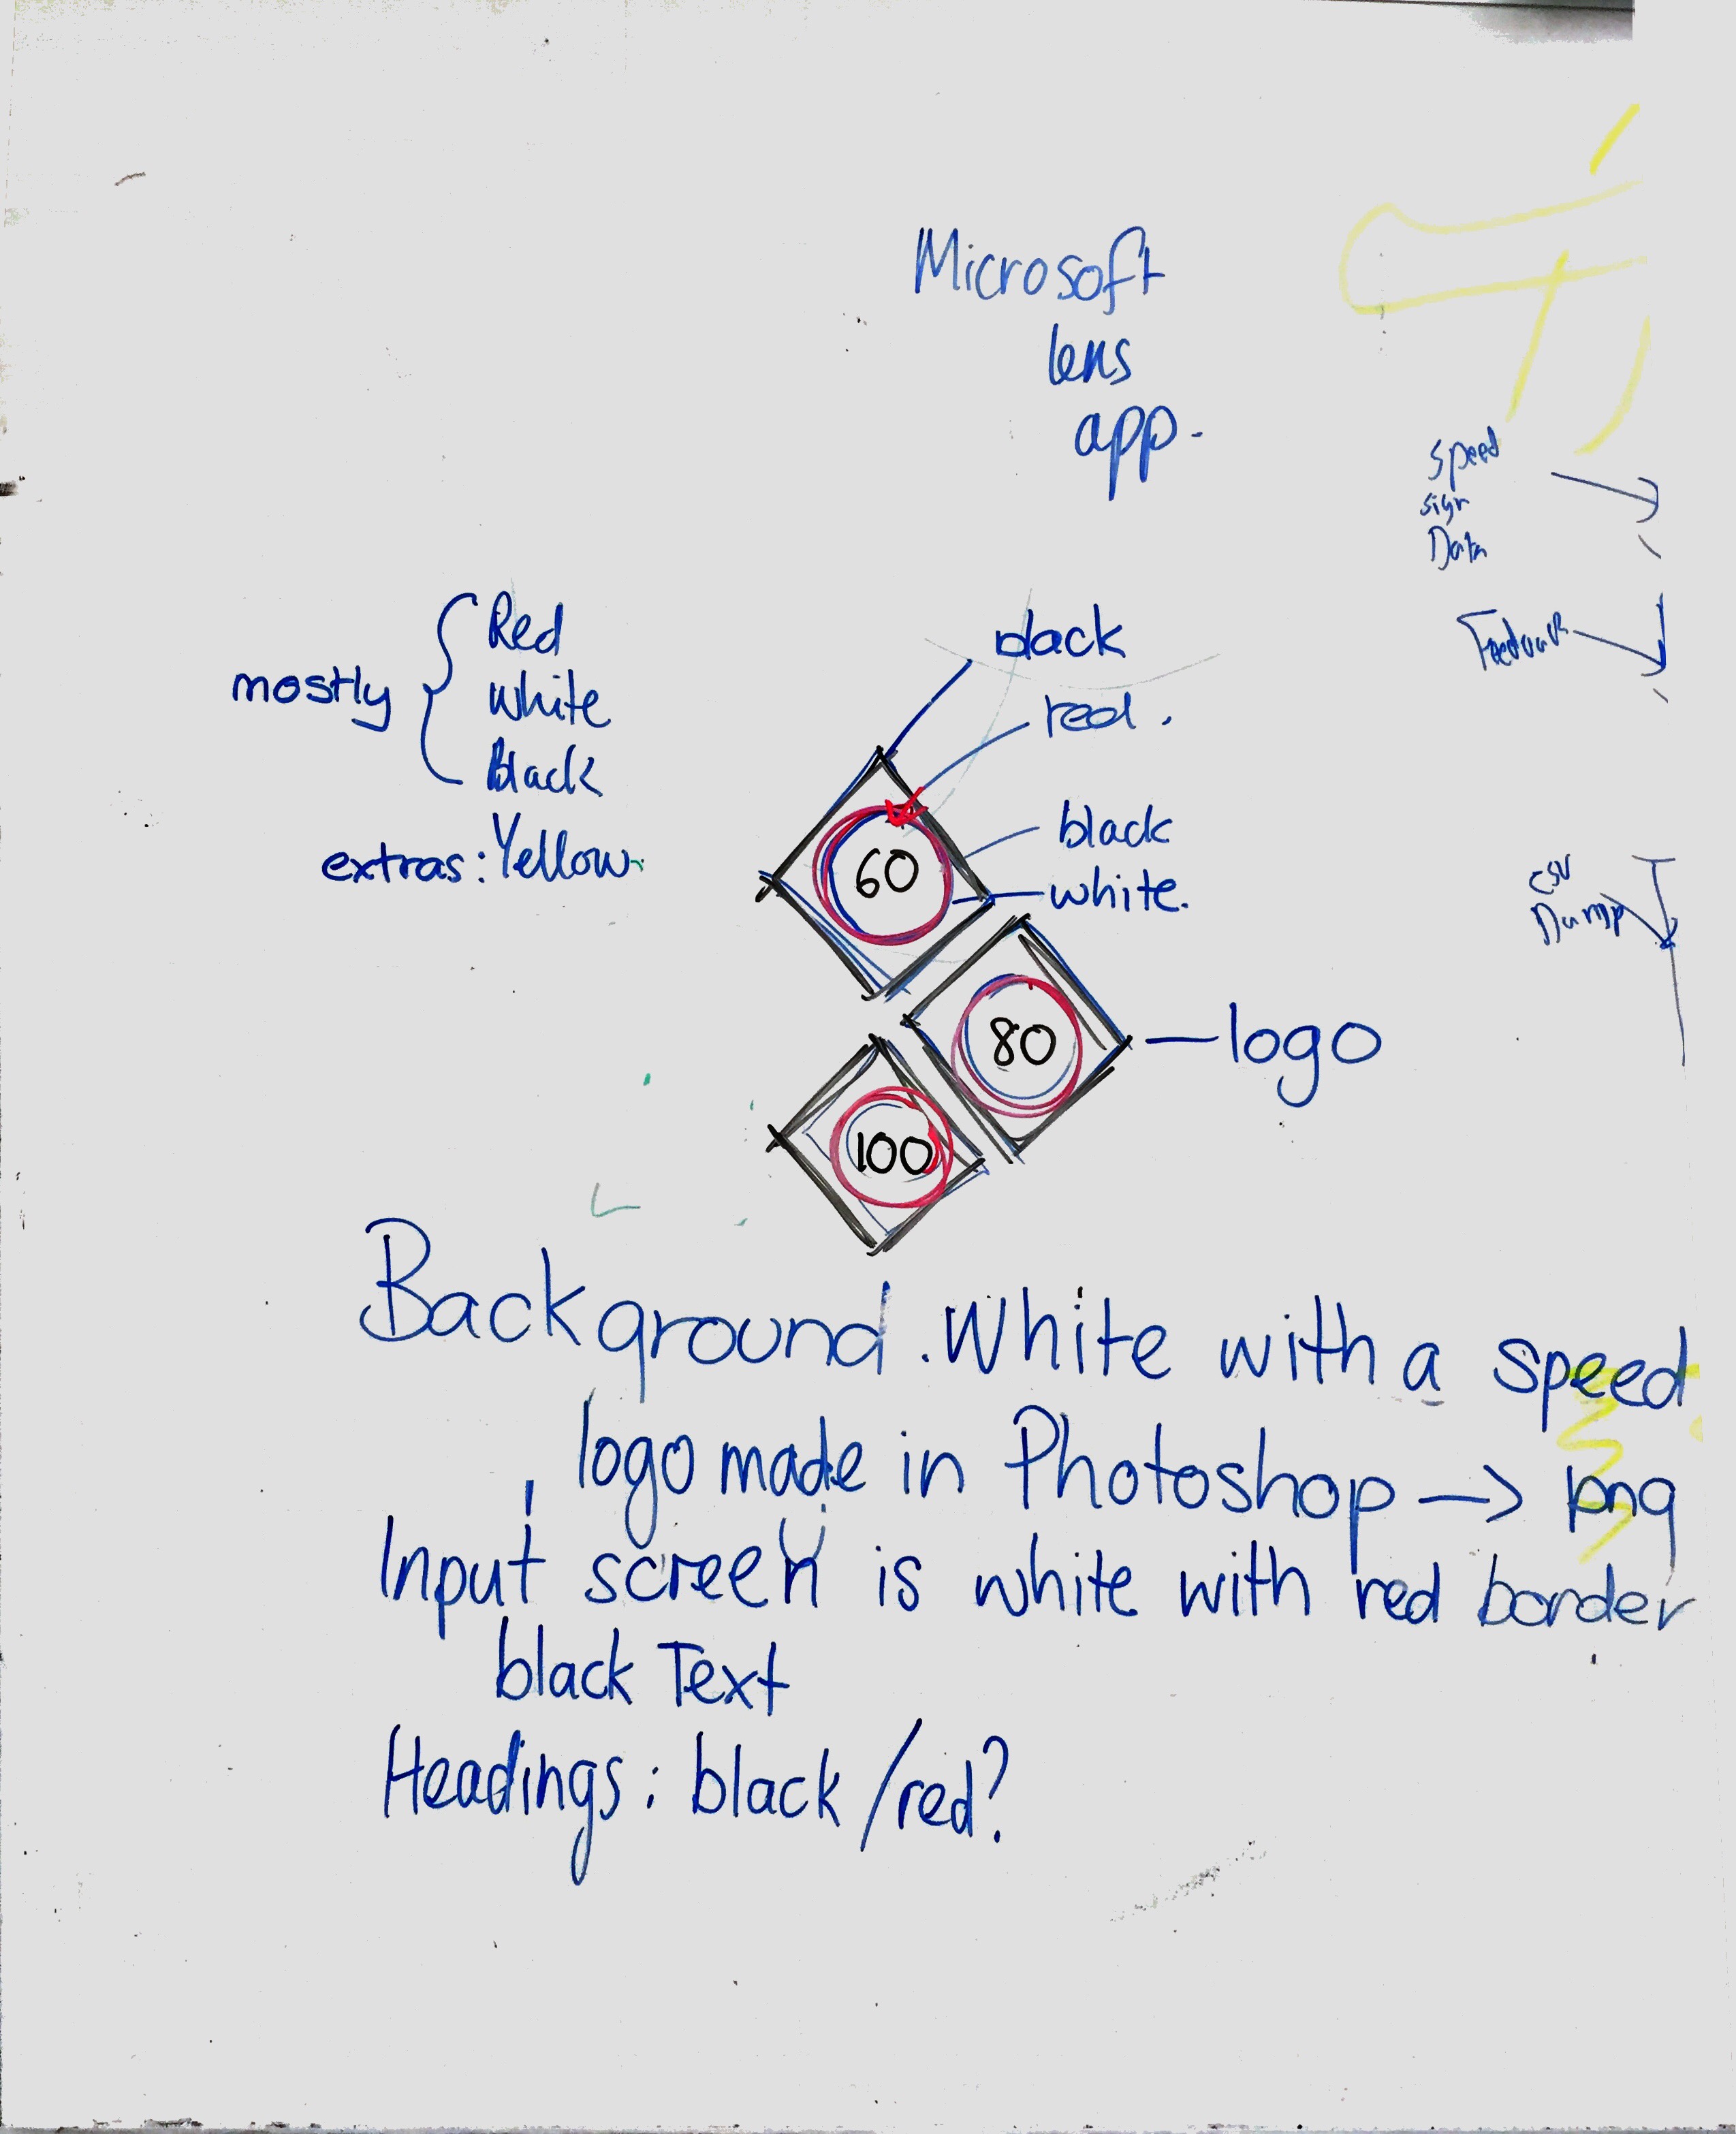 Microsoft
lens
app.
Speed
sign
Data
Feedback
mostly
Red
white
black
extras: Yellow
black
red.
black
white.
60
80
100
logo
CSV
Dump
Background. White with a speed
logo made in Photoshop -> png
Input screen is white with red border
black Text
Headings: black/red?